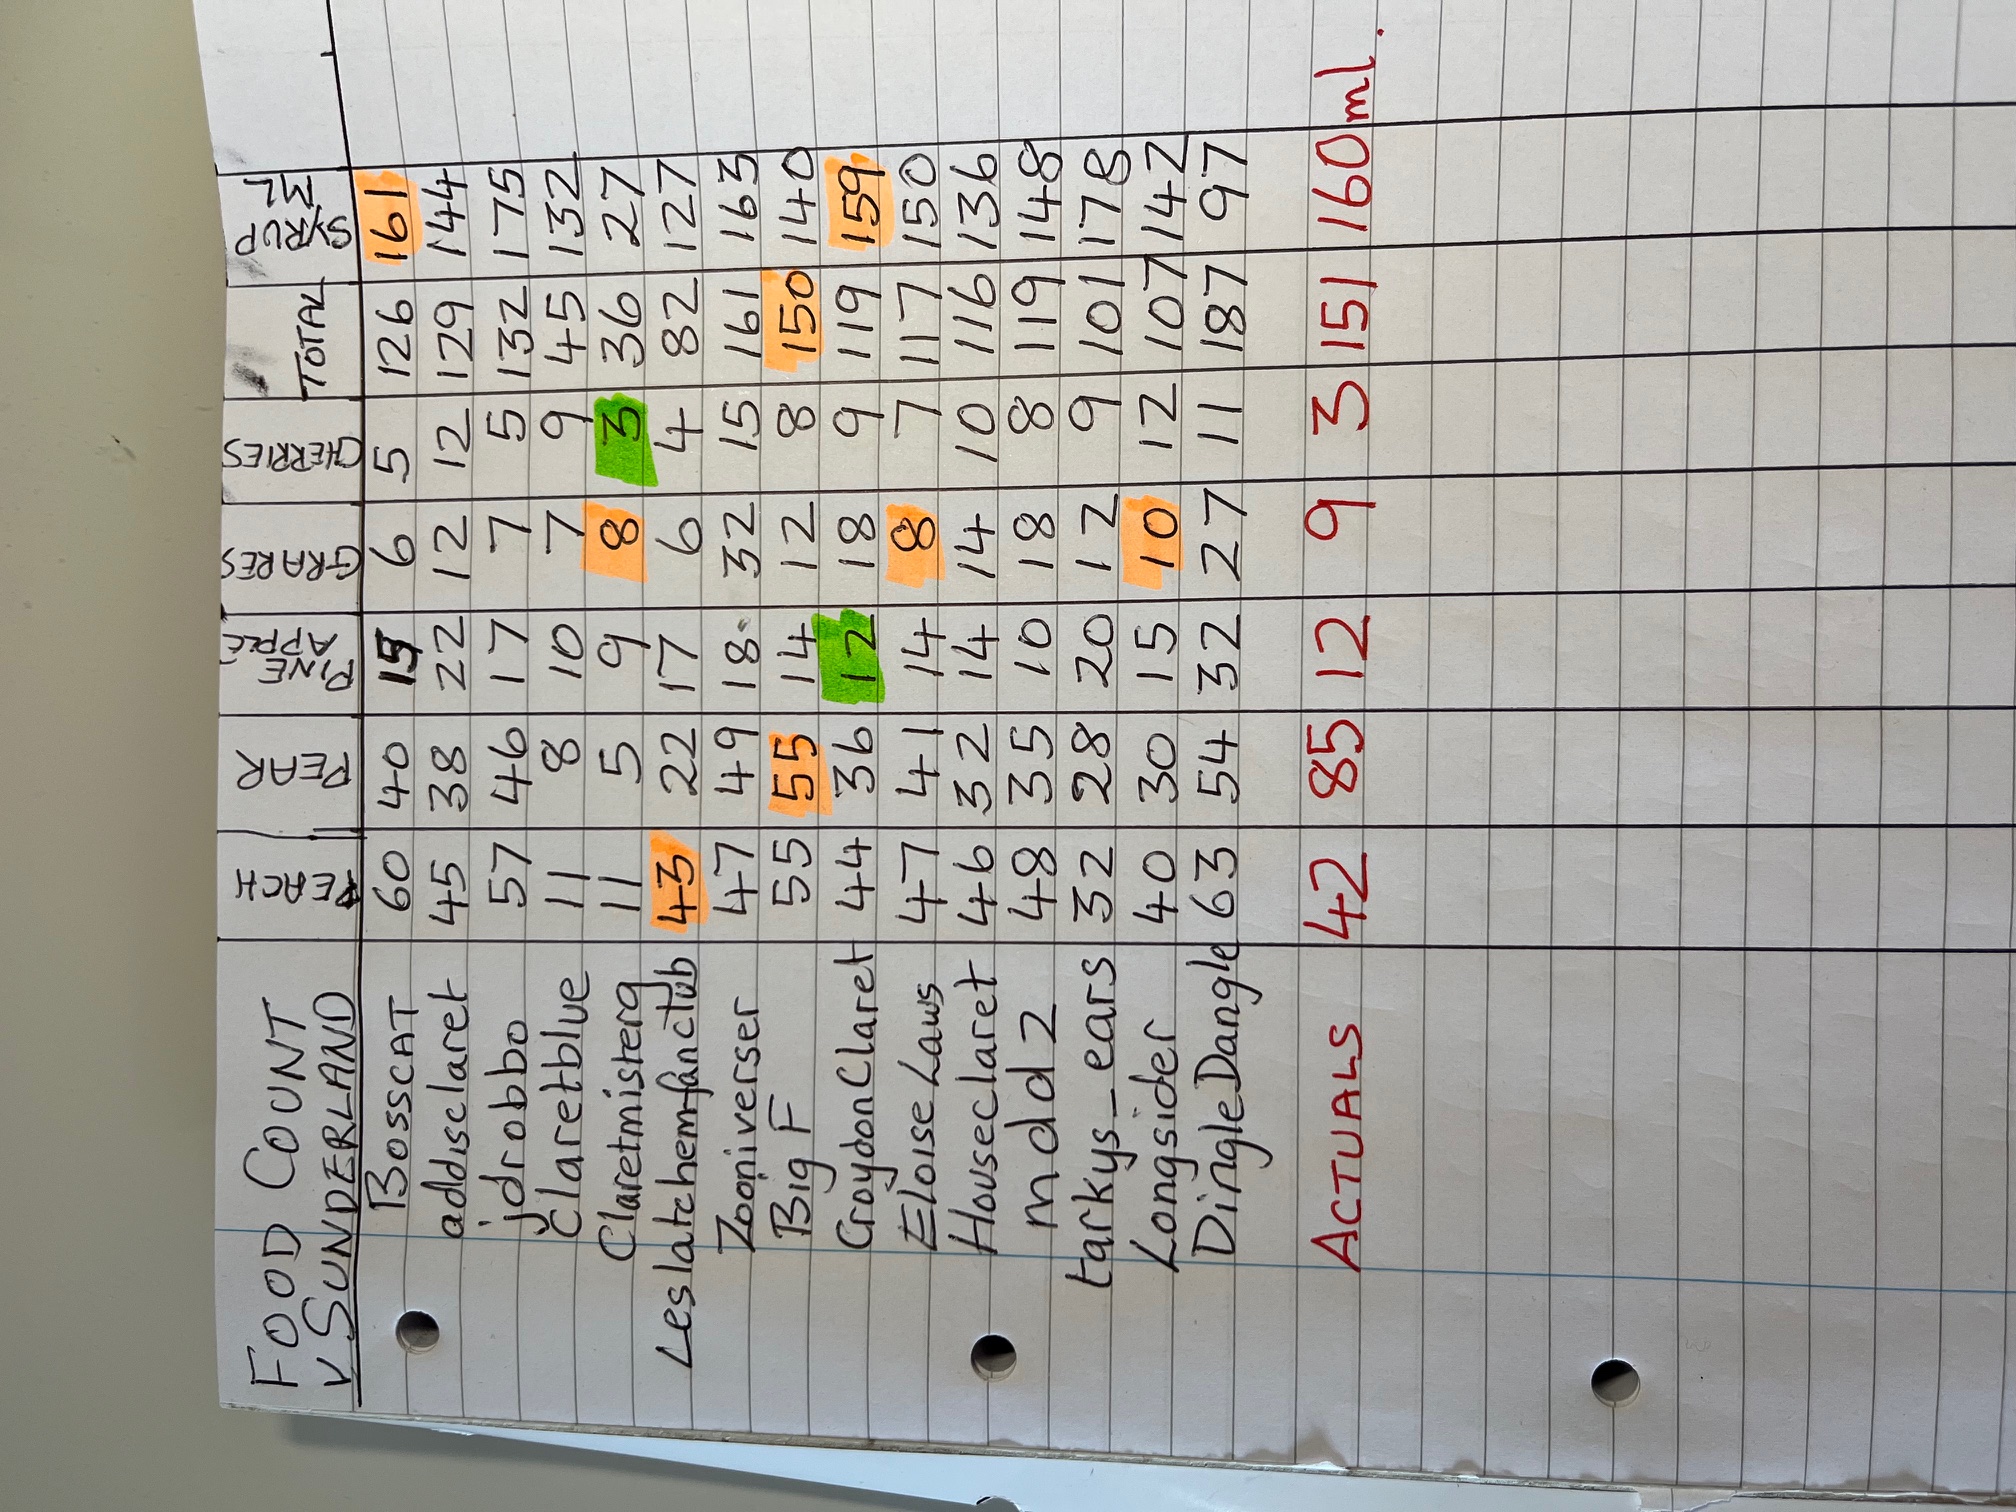 FOOD COUNT
v SUNDERLAND PEACH PEAR PINE APPLE GRAPES CHERRIES TOTAL SYRUP ML
BOSSCAT 60 40 15 6 5 126 161
addisclaret 45 38 22 12 12 129 144
jdrobbo 57 46 17 7 5 132 175
Claretblue 11 8 10 7 9 45 132
Claretmisterg 11 5 9 8 3 36 27
Leslatchemfanclub 43 22 17 6 4 82 127
Zooniverser 47 49 18 32 15 161 163
Big F 55 55 14 12 8 150 140
CroydonClaret 44 36 12 18 9 119 159
Eloise Laws 47 41 14 8 7 117 150
Houseclaret 46 32 14 14 10 116 136
mdd2 48 35 10 18 8 119 148
tarkys_ears 32 28 20 12 9 101 178
Longsider 40 30 15 10 12 107 142
DingleDangle 63 54 32 27 11 187 97
ACTUALS 42 85 12 9 3 151 160ml.